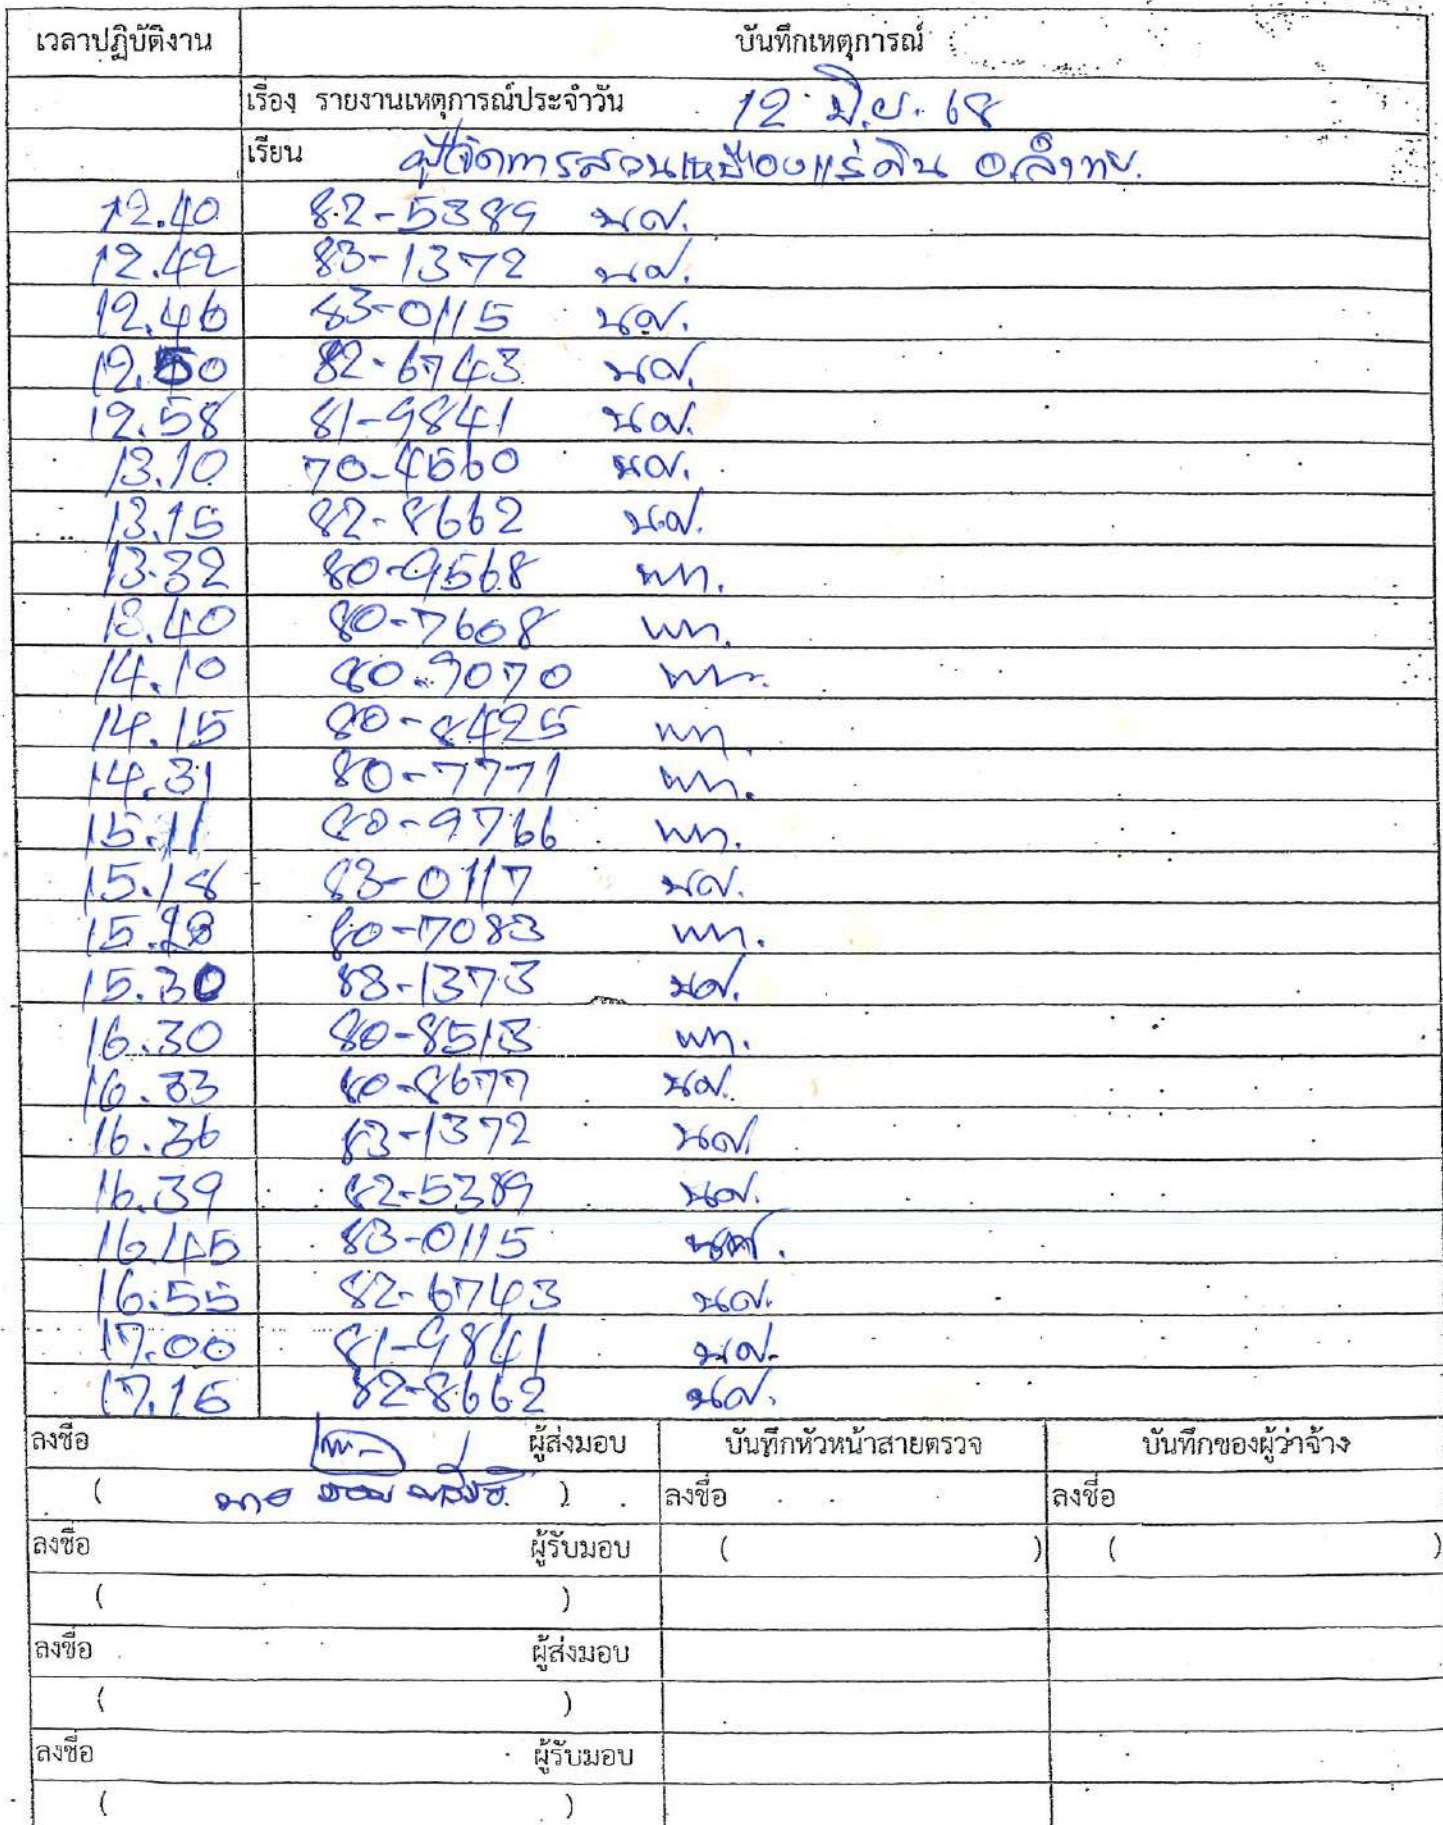 เวลาปฏิบัติงาน บันทึกเหตุการณ์
เรื่อง รายงานเหตุการณ์ประจำวัน 12 มิ.ย. 68
เรียน ผู้จัดการสวนเหมืองแร่ดิน อ.ลำทับ.
12.40 82-5389 นศ.
12.42 83-1372 นศ.
12.46 83-0115 นศ.
12.50 82-6743 นศ.
12.58 81-9841 นศ.
13.10 70-4560 นศ.
13.15 82-8662 นศ.
13.32 80-9568 พท.
13.40 80-7608 พท.
14.10 80-9070 พท.
14.15 80-8425 พท.
14.31 80-7771 พท.
15.11 80-9766 พท.
15.18 83-0117 นศ.
15.28 80-7083 พท.
15.30 83-1373 นศ.
16.30 80-8513 พท.
16.33 80-8677 นศ.
16.36 83-1372 นศ.
16.39 82-5389 นศ.
16.45 83-0115 นศ.
16.55 82-6743 นศ.
17.00 81-9841 นศ.
17.15 82-8662 นศ.
ลงชื่อ ผู้ส่งมอบ บันทึกหัวหน้าสายตรวจ บันทึกของผู้ว่าจ้าง
( นาย ) ลงชื่อ ลงชื่อ
ลงชื่อ ผู้รับมอบ ( ) ( )
( )
ลงชื่อ ผู้ส่งมอบ
( )
ลงชื่อ ผู้รับมอบ
( )